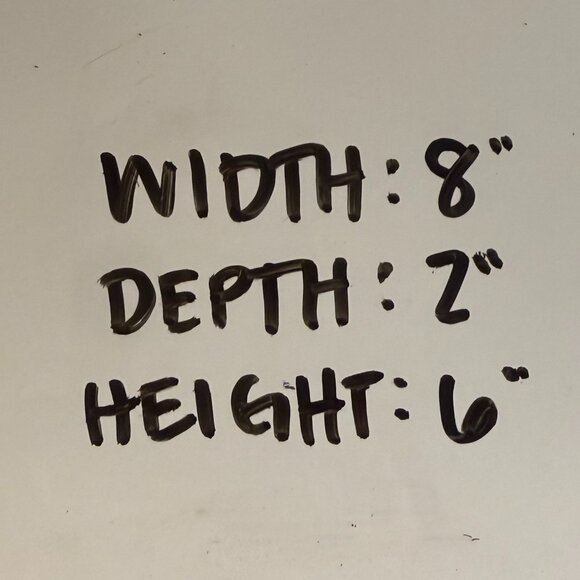 WIDTH: 8"
DEPTH: 2"
HEIGHT: 6"